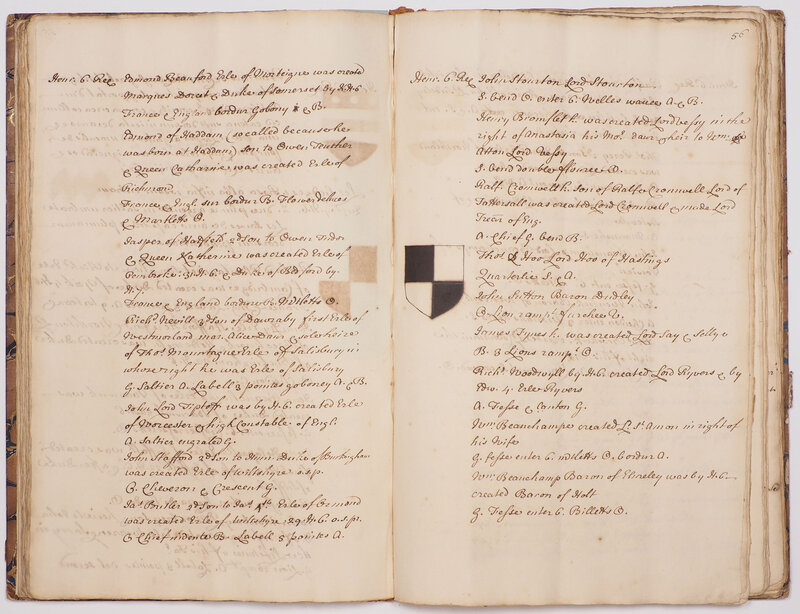 Henr. 6. Rex Edmond Beauford Erle of Morteigne was created
Marques Dorcet & Duke of Somerset by H. 6
France & England bordur Gobony & B.
Edmond of Haddam (so called because he
was born at Haddam) Son to Owen Teuther
& Queen Catharine was created Erle of
Richmond
France & Engl. sur bordur B. Flowerdelues
& Martletts O.
Jasper of Hatfeild 2d Son to Owen Tidor
& Queen Katherine was created Erle of
Penbroke 31 H. 6 & Duke of Bedford by
H. 7
France & England bordure B. Mrtletts O.
Richd. Nevill 2d Son of Dawraby first Erle of
Westmorland mar. Alice Daur & sole heire
of Thos. Mountague Erle of Salisbury in
whose right he was Erle of Salisbury
G. Saltier A. Labell 3 pointes goboney A. & B.
John Lord Tiptoff was by H. 6. created Erle
of Worcester & high Constable of Engl.
A. Saltier engraled G.
John Stafford 2d Son to Hum. Duke of Buckingham
was created Erle of Wiltshyre o.s.p.
O. Cheveron & Crescent G.
Jas. Butler 2d Son to Jas. 4th Erle of Ormond
was created Erle of Wiltshyre 29. H. 6. o.s.p.
O Chief indente B. Labell 5 pointes A.
56
Henr. 6. Rex John Stourton Lord Stourton
S. bend O. enter 6. Welles waves A. & B.
Henry Bromflet k. was created Lord Vessy in the
right of Anastasia his Mor. daur & heir to Wm.
Atton Lord Vessy
S. bend double flouree O.
Ralf Cromwell k. son of Ralfe Cromwell Lord of
Tattersall was created Lord Cromwell & made Lord
Trear of Eng.
A. Chief G. bend B.
Thos. Hoo Lord Hoo of Hastings
Quarterlie S. & A.
John Sutton Baron Dudley
O Lion ramp. furchee V.
James Fynes k. was created Lord Say & Selly
B. 3 Lions ramp. O.
Richd. Woodvyll by H. 6. created Lord Ryvers & by
Edw. 4. Erle Ryvers
A. Fesse & Canton G.
Wm. Beauchampe created L. St. Amon in right of
his Wife
G. fesse enter 6. mtletts O. bordur A.
Wm. Beauchamp Baron of Elmeley was by H. 6
created Baron of Holt
G. Fesse enter 6. Billetts O.